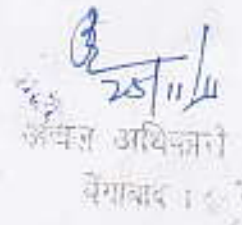 25/11/11
अंचल अधिकारी
बेंगाबाद